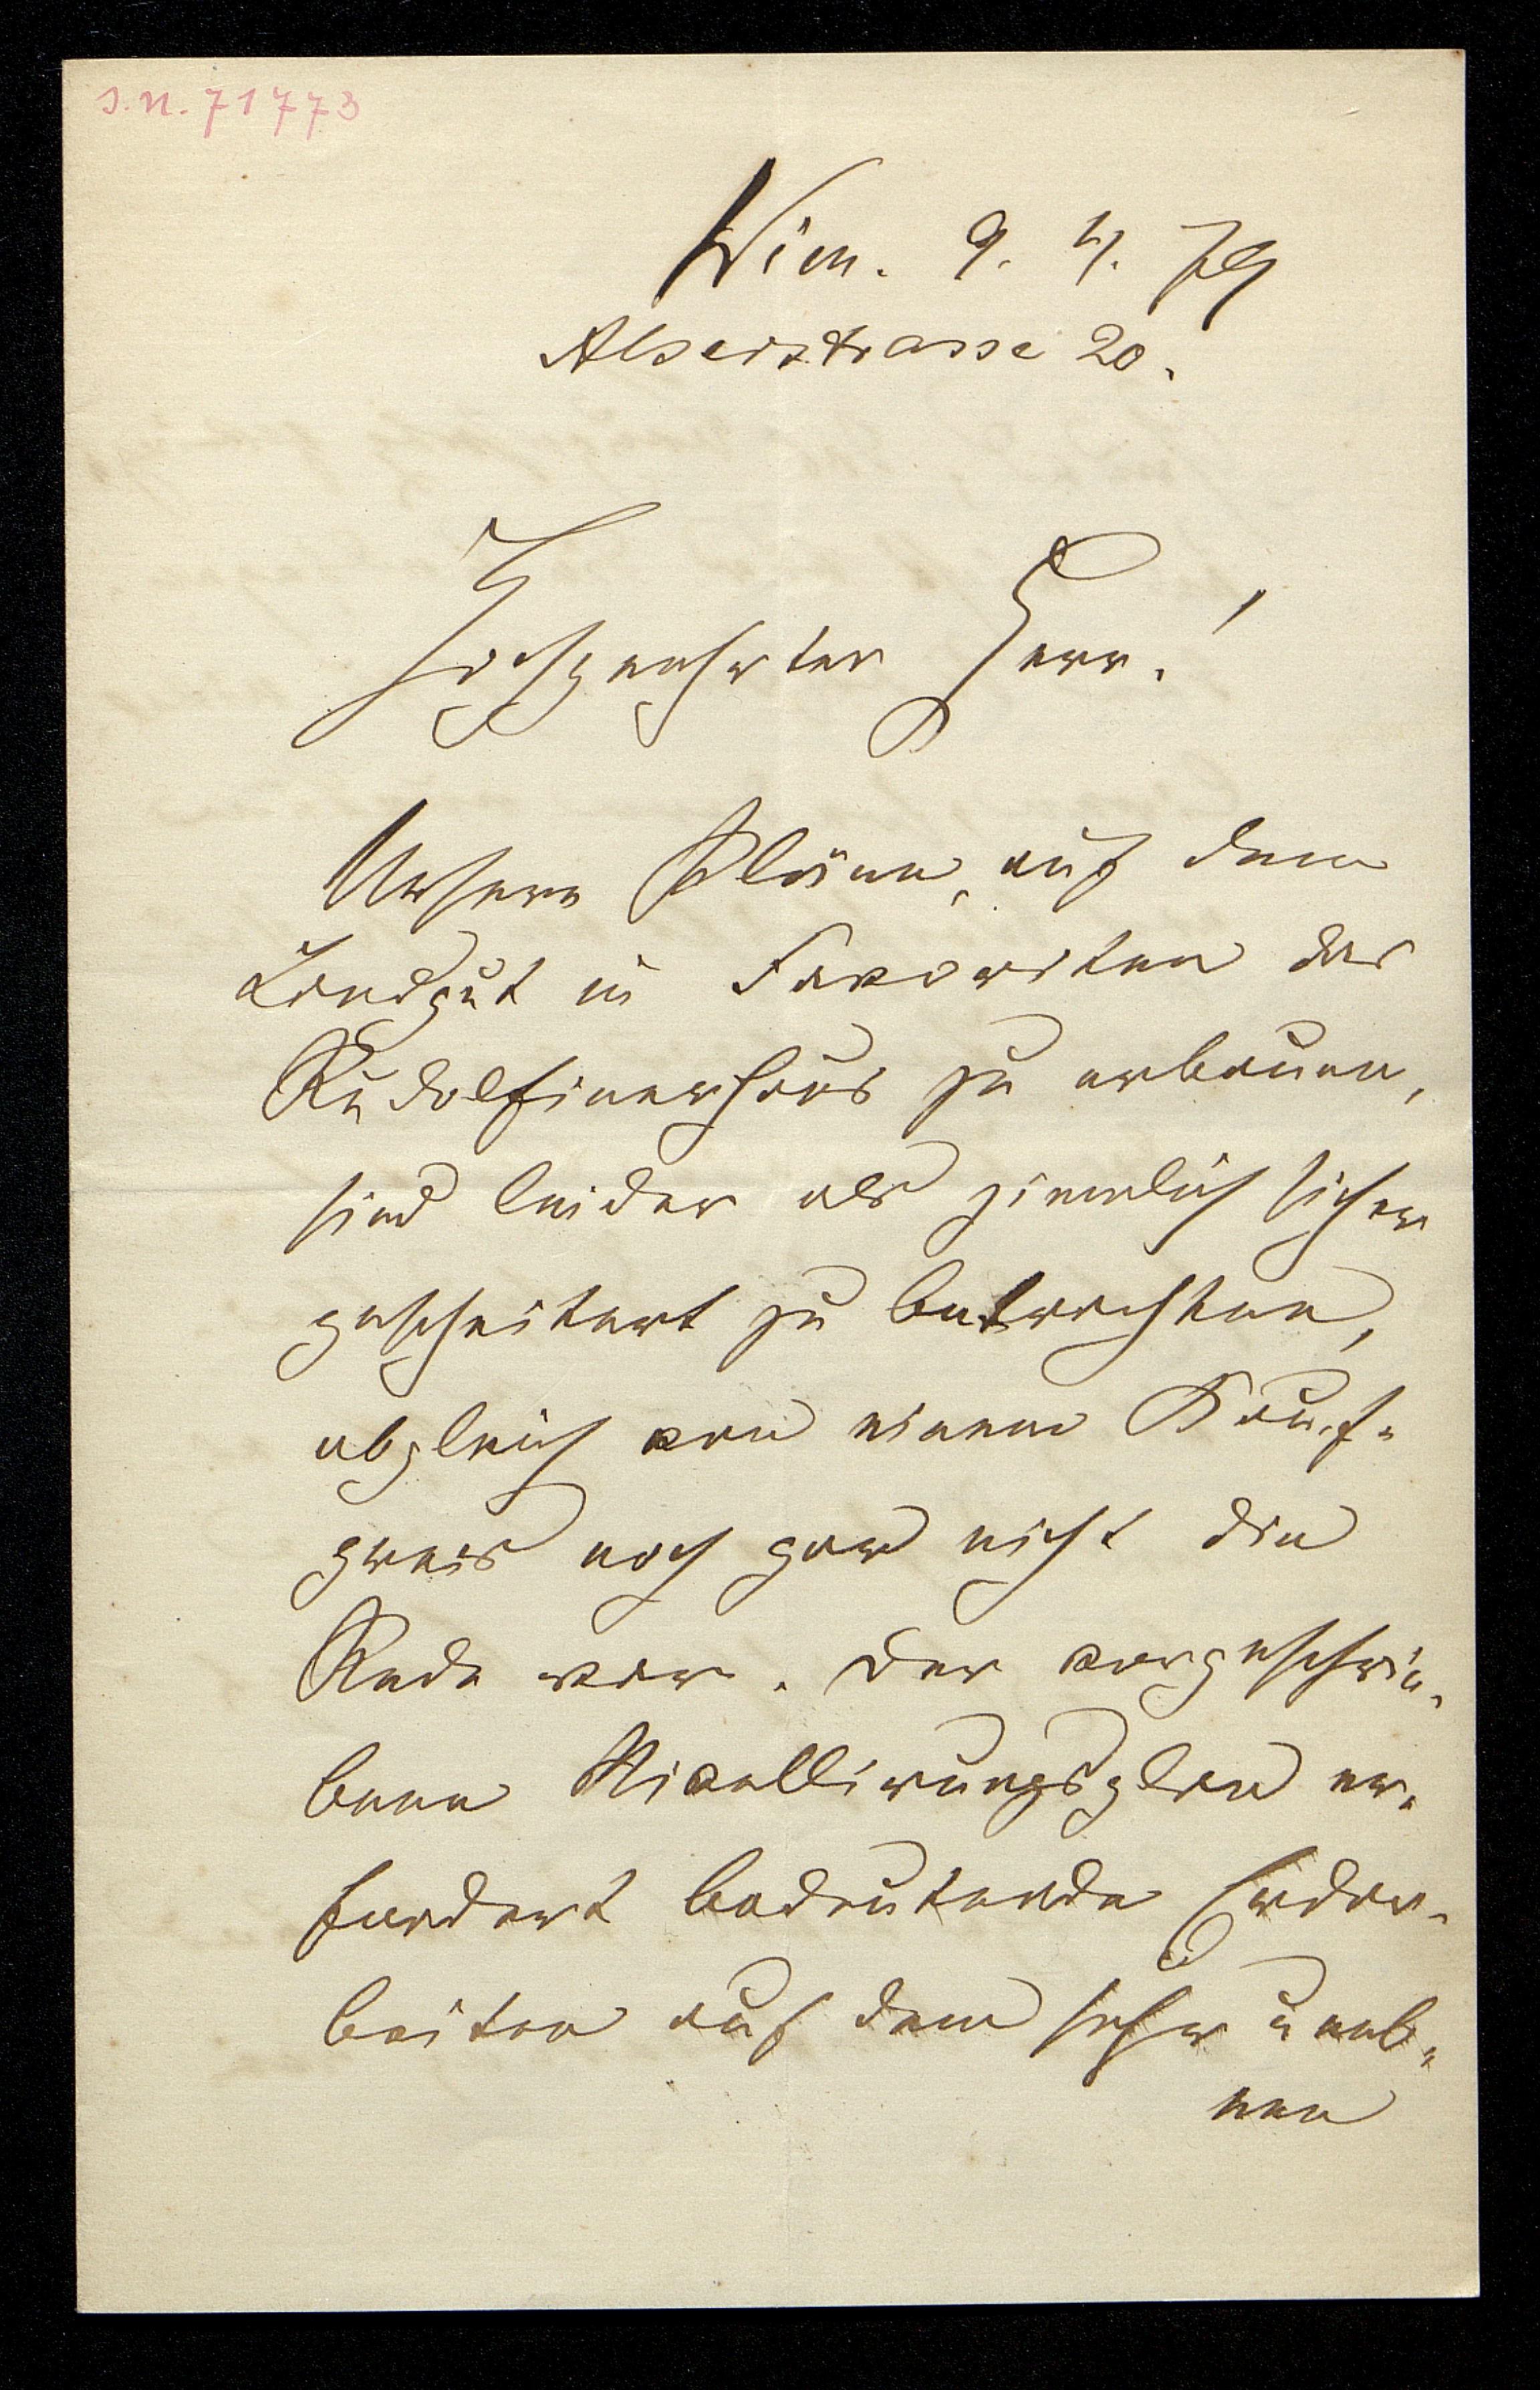 J.N. 71773
Wien. 9. 4. 79
Alserstrasse 20.
Hochgeehrter Herr!
Unsere Pläne, auf dem
Landgut in Favoriten das
Rudolfinerhaus zu erbauen,
sind leider als ziemlich sicher
gescheitert zu betrachten,
obgleich von einem Kauf-
preis noch gar nicht die
Rede war. Der vorgeschrie-
bene Nivellirungsplan er-
fordert bedeutende Erdar-
beiten auf dem sehr uneb-
nen